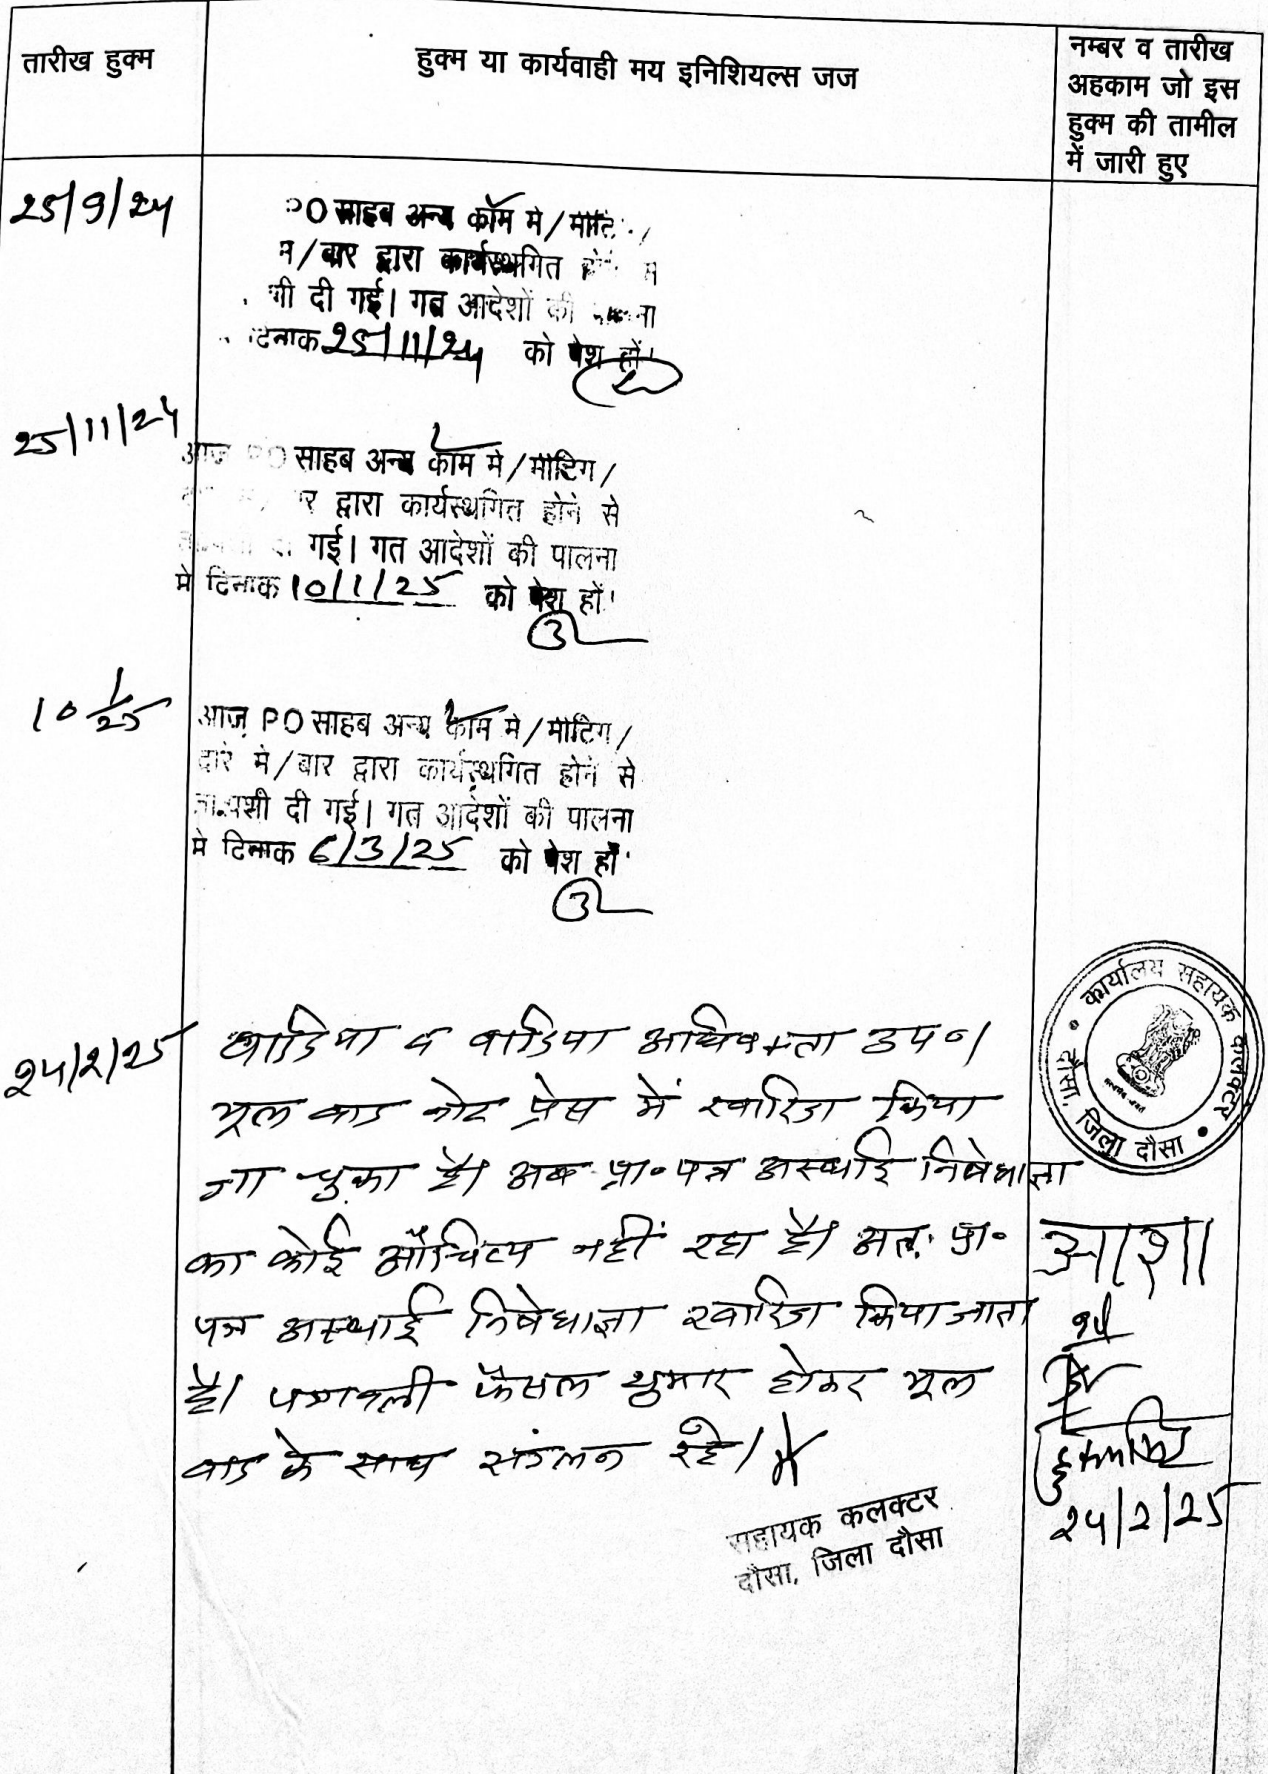 तारीख हुक्म
हुक्म या कार्यवाही मय इनिशियल्स जज
नम्बर व तारीख
अहकाम जो इस
हुक्म की तामील
में जारी हुए
25/9/24
PO साहब अन्य काम मे/मीटिंग/
मे/बार द्वारा कार्यस्थगित होने से
शी दी गई। गत आदेशों की पालना
दिनाक 25/11/24 को पेश हों।
25/11/24
आज PO साहब अन्य काम मे/मीटिंग/
बार द्वारा कार्यस्थगित होने से
गई। गत आदेशों की पालना
मे दिनाक 10/1/25 को पेश हों।
10/1/25
आज PO साहब अन्य काम मे/मीटिंग/
दौरे मे/बार द्वारा कार्यस्थगित होने से
ता.पेशी दी गई। गत आदेशों की पालना
मे दिनाक 6/3/25 को पेश हों।
24/2/25
वादिया व वादिया अधिवक्ता उप०।
मूल वाद नोट प्रेस में खारिज किया
जा चुका है। अब प्रा॰ पत्र अस्थाई निषेधाज्ञा
का कोई औचित्य नहीं रहा है। अतः प्रा॰
पत्र अस्थाई निषेधाज्ञा खारिज किया जाता
है। पत्रावली फैसल शुमार होकर मूल
वाद के साथ संलग्न रहे।
सहायक कलक्टर
दौसा, जिला दौसा
कार्यालय सहायक कलक्टर
दौसा, जिला दौसा
आशा
24/2/25